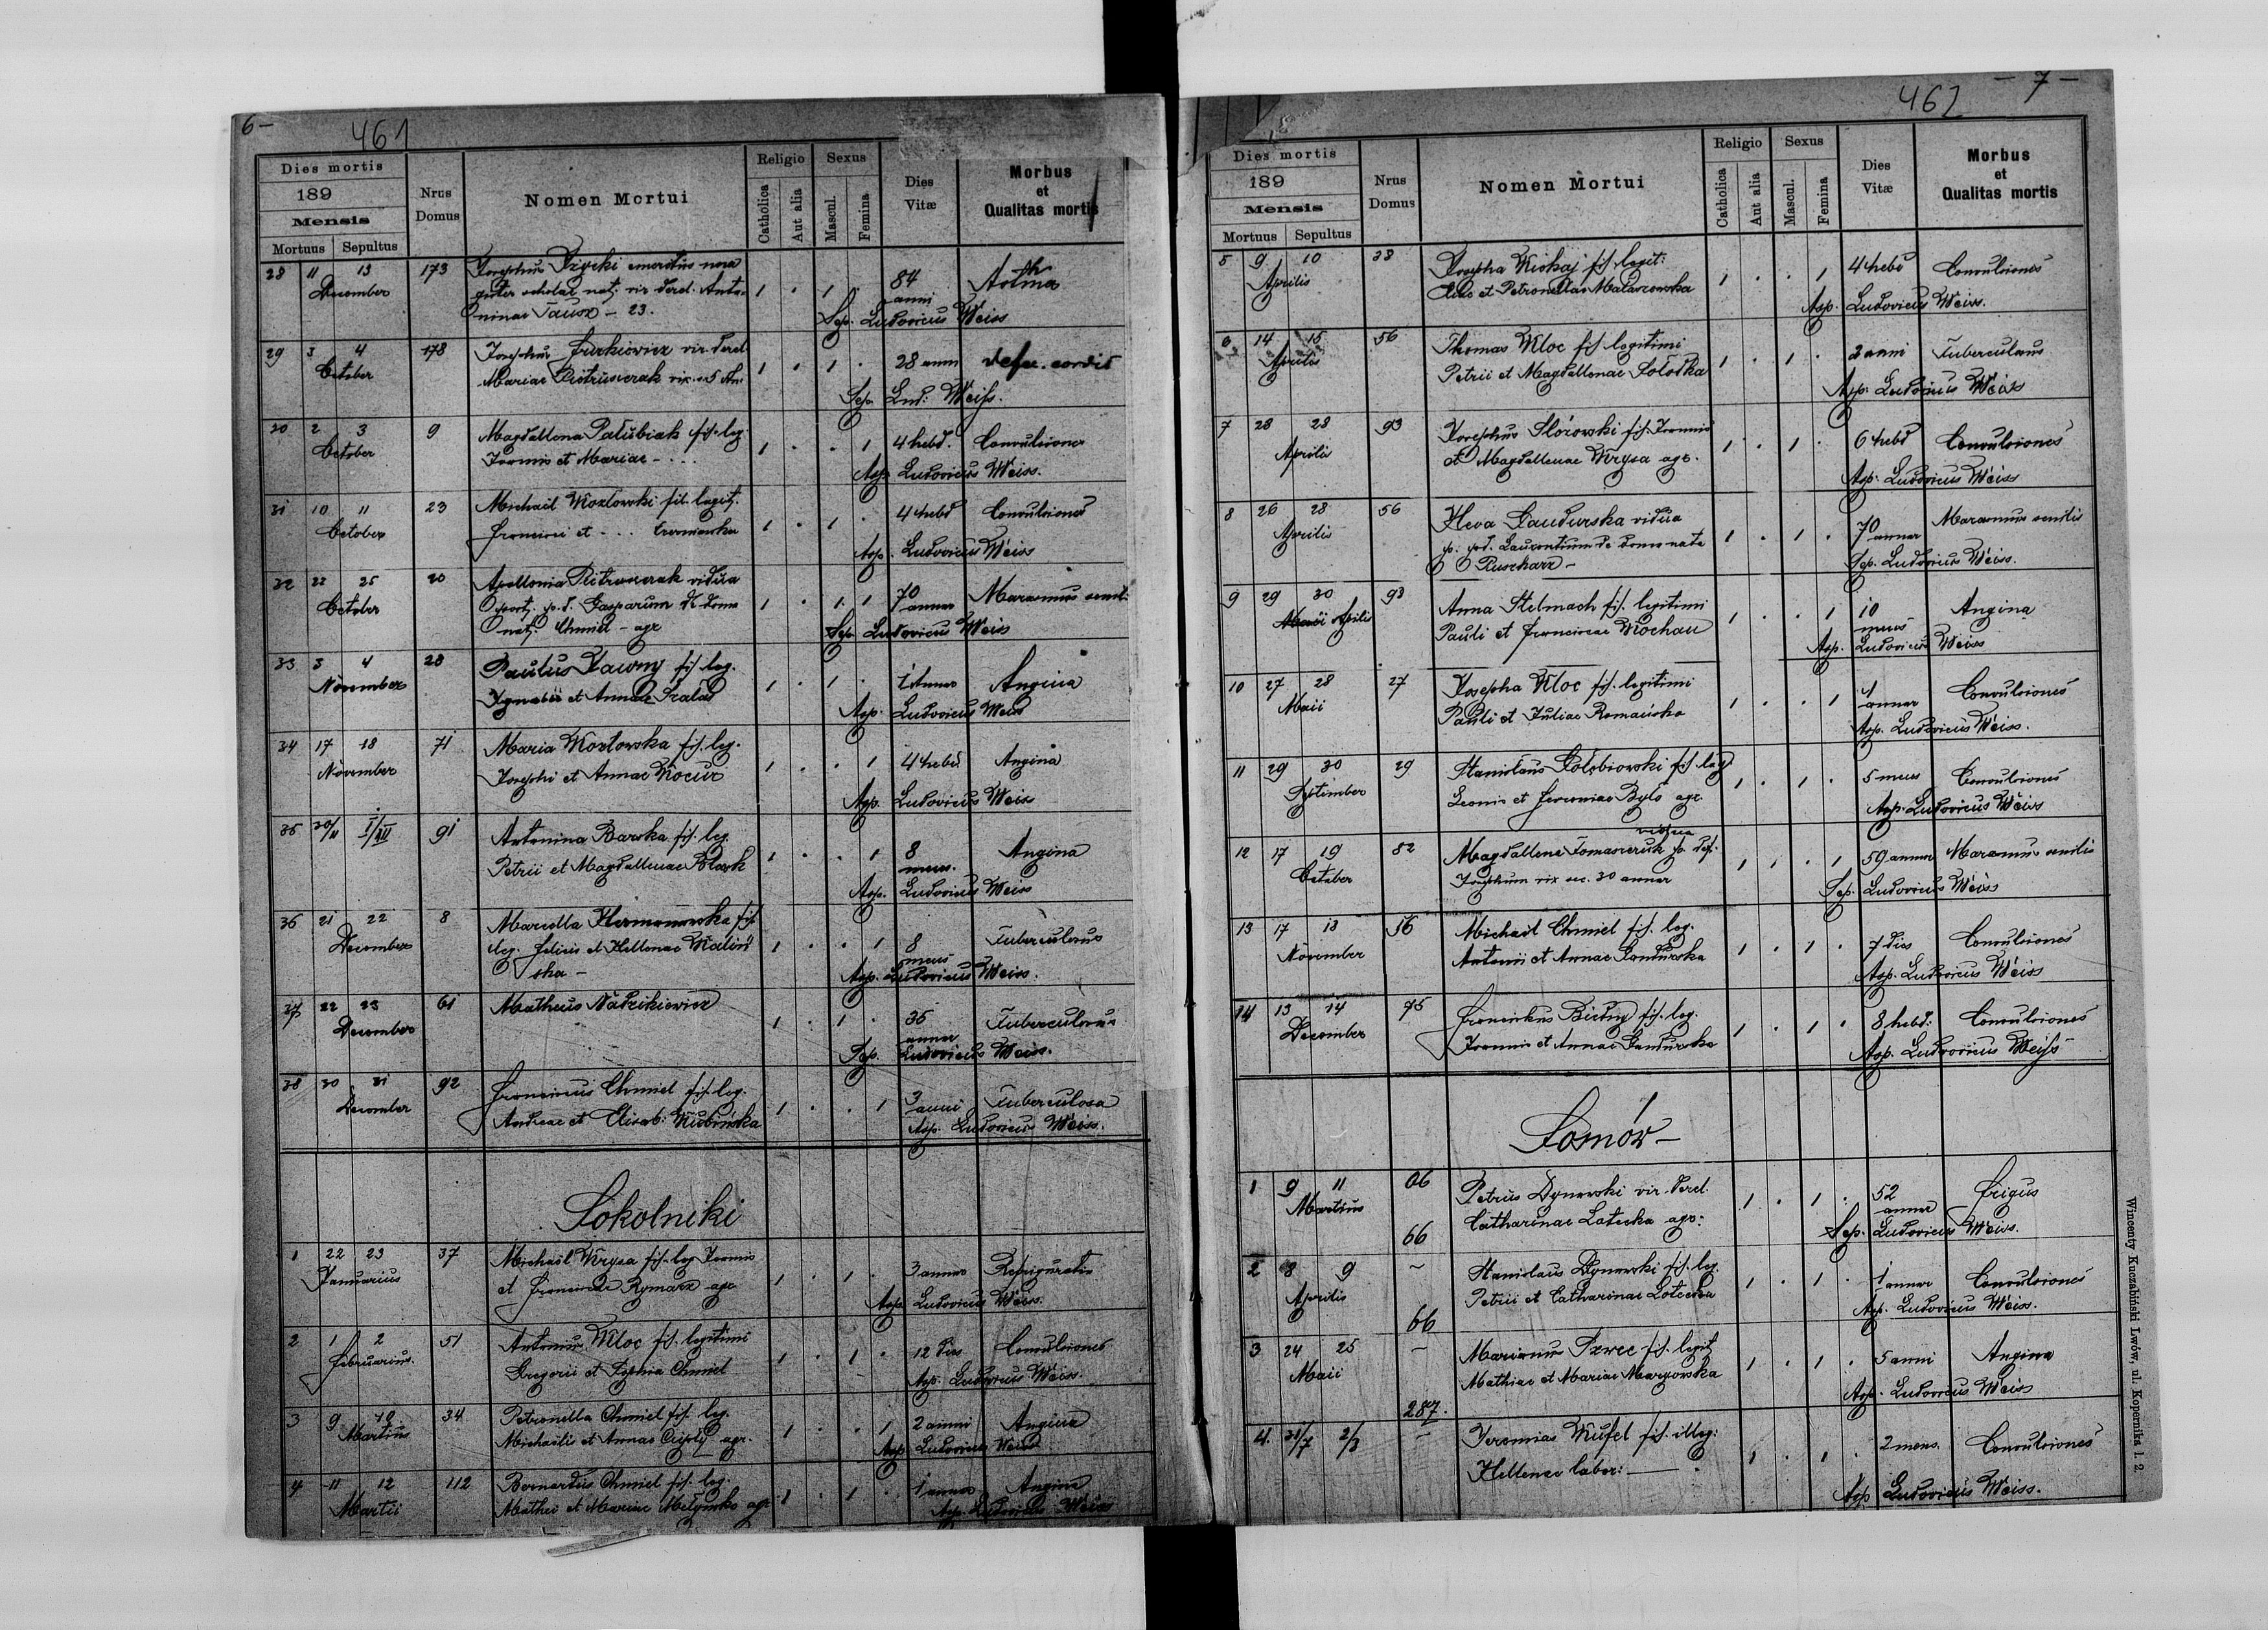 6 –
461
Dies mortis
189
Mensis
Mortuus Sepultus
Nrus Domus
Nomen Mortui
Religio
Catholica
Aut alia
Sexus
Mascul.
Femina
Dies Vitæ
Morbus et Qualitas mortis
28 11 13 173 Josephus emeritus
December scholae nat. vir derel. Anto- 1 . 1 . 84 anni
ninae – 23. Sep. Ludovicus Weiss
29 3 4 178 Josephus vir derel.
October Mariae 1 . 1 . 28 anni cordis
Sep. Lud: Weiss.
30 2 3 9 Magdallena Palubiak fil. leg.
October Joannis et Mariae – . . . 1 . . 1 4 hebd. Convulsiones
Asp. Ludovicus Weiss.
31 10 11 23 Michael Kozlowski fil. legit.
October Francisci et . . . 1 . 1 . 4 hebd Convulsiones
Asp. Ludovicus Weiss
32 22 25 20 Apollonia Pietruszczak vidua
October p. d. Gasparum de domo 1 . 1 1 70 annor Marasmus senil.
nat. Chmiel – agr Sep. Ludovicus Weiss
33 3 4 28 Paulus fil. leg.
November Ignatii et Annae 1 . 1 . 1 Annor Angina
Asp. Ludovicus Weiss
34 17 18 71 Maria Kozlowska fil. leg.
November Josephi et Annae Kocur 1 . . 1 4 hebd Angina
Asp. Ludovicus Weiss
35 30/11 I/XII 91 Antonina Barska fil. leg.
Petrii et Magdallenae 1 . . 1 8 mens. Angina
Asp. Ludovicus Weiss
36 21 22 8 Marcella Hermanowska fil.
December leg. Felicis et Hellenae Kalin 1 . . 1 8 mens Tuberculosus
ska – Asp. Ludovicus Weiss.
37 22 23 61 Matheus Nadzikiewicz
December 1 . 1 . 35 annor Tuberculosus
Sep. Ludovicus Weiss.
38 30 31 92 Franciscus Chmiel fil. leg.
December Andreae et Elisab: Kubinska 1 . . 1 3 anni Tuberculosa
Asp. Ludovicus Weiss.
Sokolniki
1 22 23 37 Michael Krysa fil. leg Joannis
Januarius et Franciscae Rymarz agr 1 . 1 . 3 annor
Asp. Ludovicus Weiss.
2 1 2 51 Antonius Kloc fil. legitimi
Februarius Gregorii et Sophia Chmiel 1 . 1 . 12 dies Convulsiones
Asp. Ludovicus Weiss.
3 9 10 34 Petronella Chmiel fil. leg.
Martius Michaeli et Annae agr. 1 . . 1 2 anni Angina
Asp Ludovicus Weiss
4 11 12 112 Bernardus Chmiel fil. leg.
Martii Mathei et Mariae agr 1 . 1 . 1 annor Angina
Asp. Ludovicus Weiss
– 7 –
462
Dies mortis
189
Mensis
Mortuus Sepultus
Nrus Domus
Nomen Mortui
Religio
Catholica
Aut alia
Sexus
Mascul.
Femina
Dies Vitæ
Morbus et Qualitas mortis
5 9 10 38 Josepha fil. legit:
Aprilis et Petronellae 1 . . 1 4 hebd Convulsiones
Asp. Ludovicus Weiss.
6 14 15 56 Thomas Kloc fil. legitimi
Aprilis Petrii et Magdallenae 1 . 1 . 2 anni Tuberculosus
Asp. Ludovicus Weiss
7 28 28 93 Josephus fil. Joannis
Aprilis et Magdallenae Krysa agr. 1 . 1 . 6 hebd Convulsiones
Asp. Ludovicus Weiss
8 26 28 56 Heva Gandurska vidua
Aprilis p. Laurentium de domo nata 1 . 1 . 70 annor Marasmus senilis
Sep. Ludovicus Weiss.
9 29 30 93 Anna Stelmach fil. legitimi
Aprilis Pauli et Franciscae Kochan 1 . . 1 10 mens Angina
Asp. Ludovicus Weiss
10 27 28 27 Josepha Kloc fil. legitimi
Maii Pauli et Juliae Romanska 1 . . 1 1 annor Convulsiones
Asp. Ludovicus Weiss.
11 29 30 29 Stanislaus fil. leg
September Leonis et agr. 1 . 1 . 5 mens Convulsiones
Asp. Ludovicus Weiss
vidua
12 17 19 82 Magdallena Tomaszczuk p. def.
October Josephum vix. ec. 30 annor 1 . . 1 59 annor Marasmus senilis
Sep. Ludovicus Weiss
13 17 18 56 Michael Chmiel fil. leg.
November Antonii et Annae Gandurska 1 . 1 . 7 dies Convulsiones
Asp. Ludovicus Weiss
14 13 14 75 fil. leg.
December Joannis et Annae Gandurska 1 . 1 . 8 hebd: Convulsiones
Asp. Ludovicus Weiss
Sosnów –
1 9 11 66 Petrus Dynowski vir derel.
Martius Catharinae agr: 1 . 1 . 52 annor frigus
66 Sep. Ludovicus Weiss.
2 8 9 ~ Stanislaus Dynowski fil. leg.
Aprilis Petrii et Catharinae 1 . 1 . 1 annor Convulsiones
66 Asp. Ludovicus Weiss.
3 24 25 ~ Marianus fil. legit
Maii Mathiae et Mariae 1 . 1 . 5 anni Angina
287. Asp. Ludovicus Weiss
4. 31/7 2/8 ~ Jeremias Kufel fil. illeg:
Hellenae labor: — 1 . 1 . 2 mens. Convulsiones
Asp Ludovicus Weiss.
Wincenty Kuczabiński Lwów, ul. Kopernika l. 2.